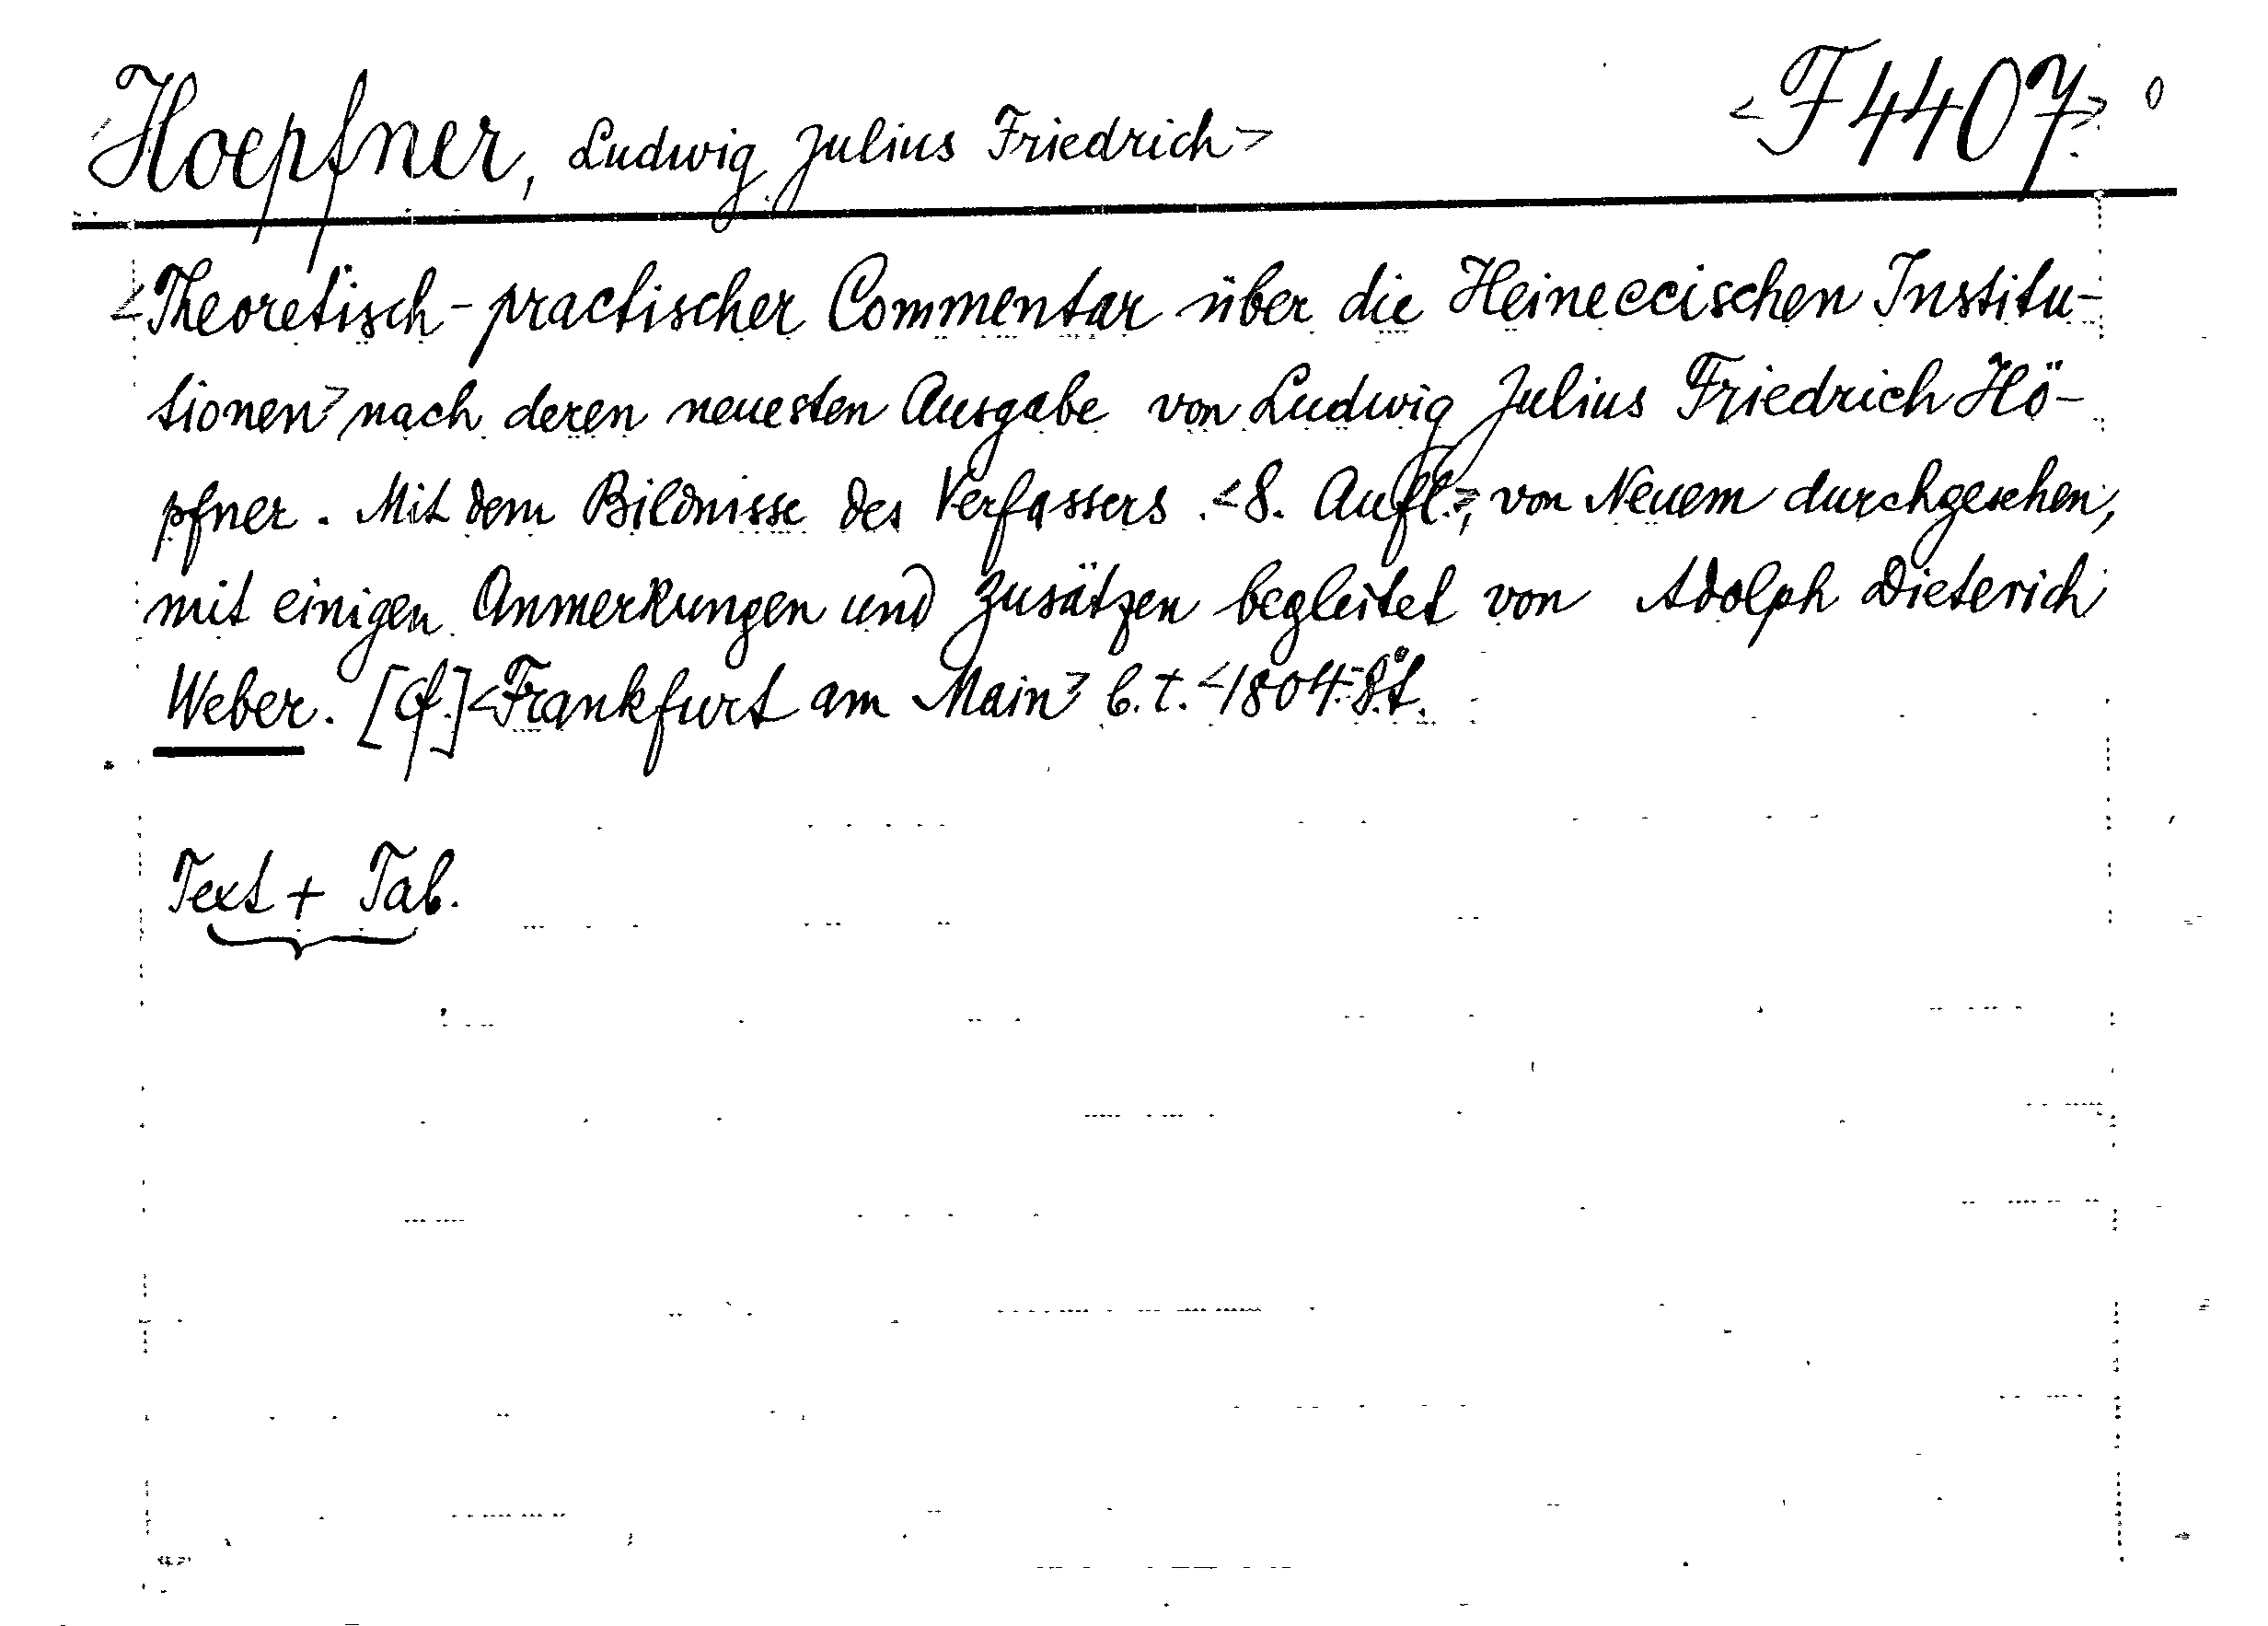 <Hoepfner, Ludwig Julius Friedrich> <F 4407> 0
<Theoretisch-practischer Commentar über die Heineccischen Institu-
tionen> nach deren neuesten Ausgabe von Ludwig Julius Friedrich Hö-
pfner. Mit dem Bildnisse des Verfassers. <8. Aufl.>, von Neuem durchgesehen,
mit einigen Anmerkungen und Zusätzen begleitet von Adolph Dieterich
Weber. [Cf.] <Frankfurt am Main> b. t. <1804.> 8° t.
Text + Tab.